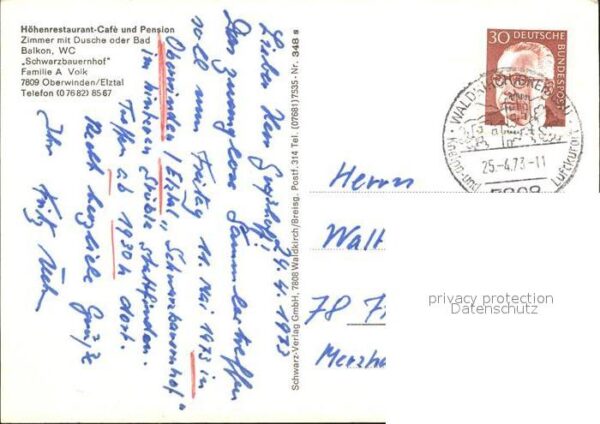 Höhenrestaurant-Café und Pension
Zimmer mit Dusche oder Bad
Balkon, WC
„Schwarzbauernhof"
Familie A Volk
7809 Oberwinden/Elztal
Telefon (07682) 8567
24.4.1973
Lieber Herr
Das zwanglose Sammlertreffen
soll nun Freitag 11. Mai 1973 in
Oberwinden / Elztal „Schwarzbauernhof"
im hinteren Stüble stattfinden.
Treffen ab 1930 h dort.
Recht herzliche Grüße
Ihr Fritz
Schwarz-Verlag GmbH, 7808 Waldkirch/Breisg. Postf. 314 Tel. (07681) 7535 · Nr. 348 s
30 DEUTSCHE BUNDESPOST
WALDKIRCH
Kneipp- und Luftkurort
25.-4.73-11
7808
Herrn
Walt
78 F
Merzha
privacy protection
Datenschutz